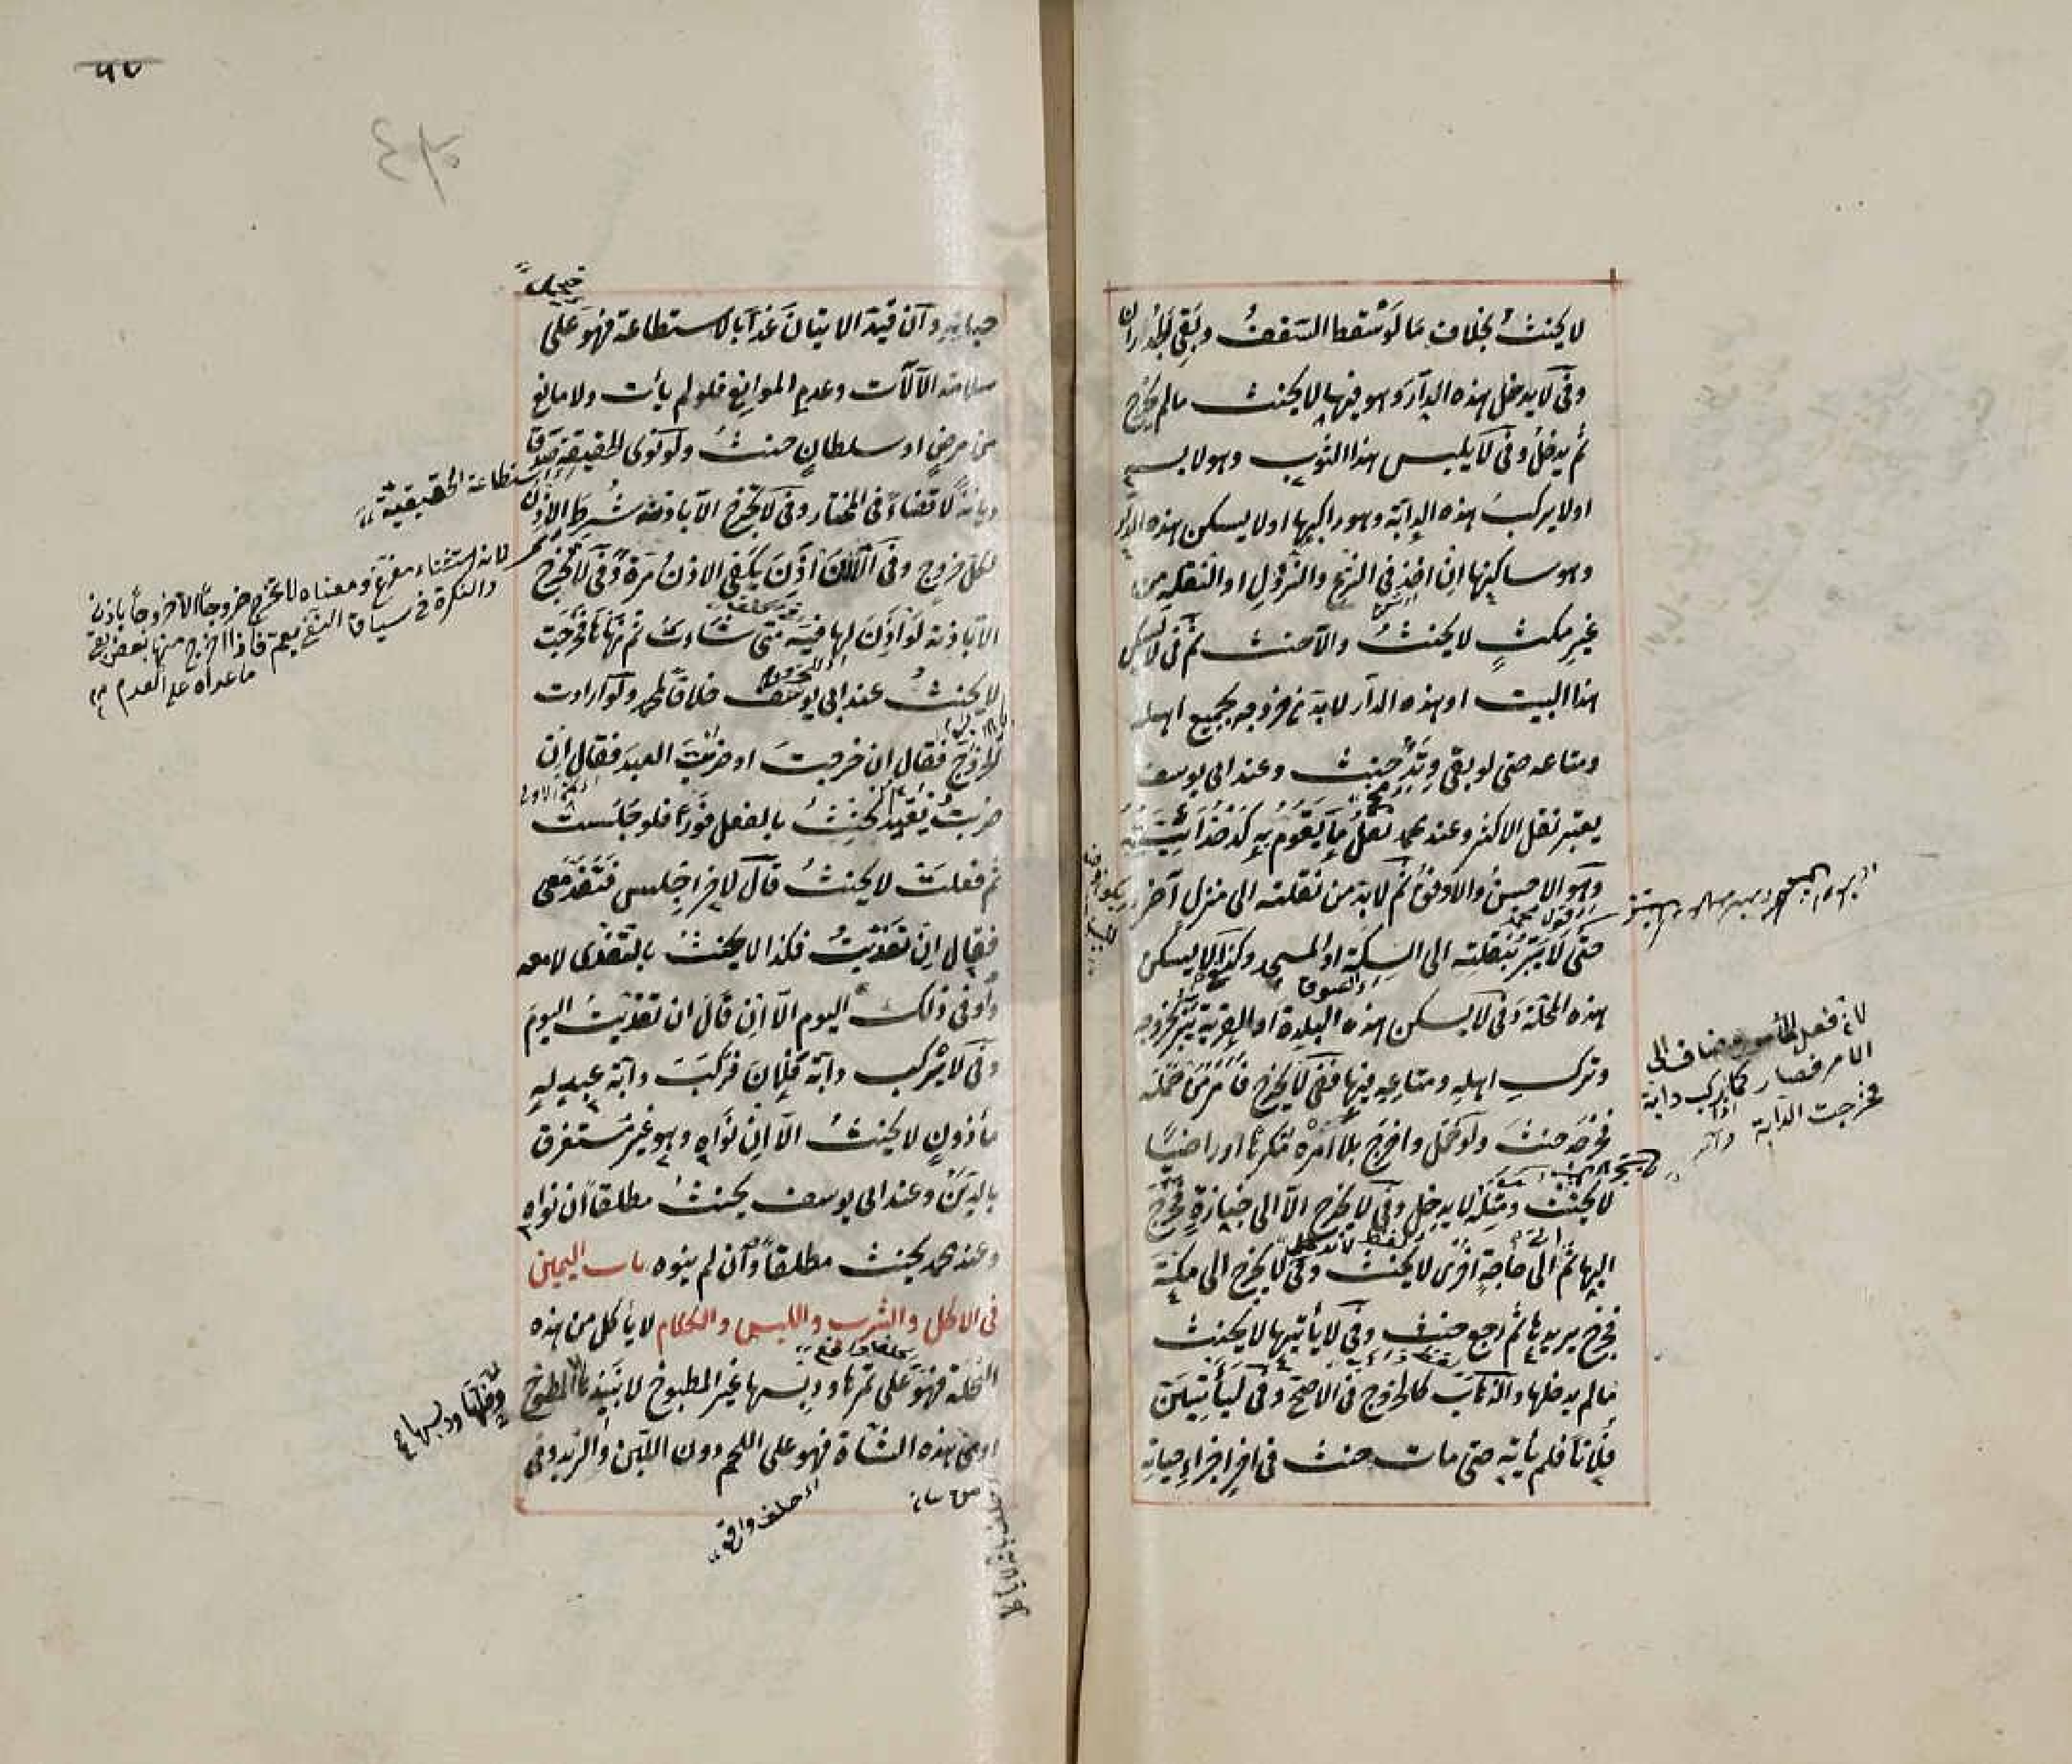 لا يحنث بخلاف ما لو سقط السقف وبقي الجدران
وفي لا يدخل هذه الدار وهو فيها لا يحنث مالم يخرج
ثم يدخل وفي لا يلبس هذا الثوب وهو لابسه
او لا يركب هذه الدابة وهو راكبها او لا يسكن هذه الدار
وهو ساكنها ان اخذ في النزع والنزول او النقلة من
غير مكث لا يحنث والا حنث ثم في لا يسكن
هذا البيت او هذه الدار لابد من خروجه بجميع اهله
ومتاعه حتى لو بقي وتد حنث وعند ابي يوسف
يعتبر نقل الاكثر وعند محمد نقل ما يقوم به كدخدائيته
وهو الاحسن والارفق ثم لابد من نقلته الى منزل آخر
حتى لا يبر بنقلته الى السكة او المسجد وكذا لا يسكن
هذه المحلة وفي لا يسكن هذه البلدة او القرية يبر بخروجه
وترك اهله ومتاعه فيها ففي لا يخرج فأمر من حمله
فاخرجه حنث ولو حمل واخرج بلا امره مكرها او راضيا
لا يحنث ومثله لا يدخل وفي لا يخرج الا الى جنازة فخرج
اليها ثم الى حاجة اخرى لا يحنث وفي لا يخرج الى مكة
فخرج يريدها ثم رجع حنث وفي لا يأتيها لا يحنث
مالم يدخلها والذهاب كالخروج في الاصح وفي ليأتين
فلانا فلم يأته حتى مات حنث في آخر اجزاء حياته
لان فعل المأمور مضاف الى
الامر فصار كما اذا ركب دابة
فخرجت الدابة
٥٧
حياته وان قيد الاتيان غدا بالاستطاعة فهو على
سلامة الآلات وعدم الموانع فلو لم يأت ولا مانع
من مرض او سلطان حنث ولو نوى الحقيقة صدق
ديانة لا قضاء في المختار وفي لا تخرج الا باذنه شرط الاذن
لكل خروج وفي الا ان آذن يكفي الاذن مرة وفي لا تخرج
الا باذنه لو اذن لها فيه متى شاءت ثم نهاها فخرجت
لا يحنث عند ابي يوسف خلافا لمحمد ولو ارادت
الخروج فقال ان خرجت او ضرب العبد فقال ان
ضربت تقيد الحنث بالفعل فورا فلو جلست
ثم فعلت لا يحنث قال لآخر اجلس فتغد معي
فقال ان تغديت فكذا لا يحنث بالتغدي لا معه
ولو في ذلك اليوم الا ان قال ان تغديت اليوم
وفي لا يركب دابة فلان فركب دابة عبد له
مأذون لا يحنث الا ان نواه وهو غير مستغرق
بالدين وعند ابي يوسف يحنث مطلقا ان نواه
وعند محمد يحنث مطلقا وان لم ينوه باب اليمين
في الاكل والشرب واللبس والكلام لا يأكل من هذه
النخلة فهو على تمرها ودبسها غير المطبوخ لا نبيذها المطبوخ
او من هذه الشاة فهو على اللحم دون اللبن والزبد وفي
الاستطاعة الحقيقية
لانه استثناء مفرغ ومعناه لا تخرج خروجا الا خروجا باذن
والنكرة في سياق النفي يعم فاذا اخرج منها بعض بقي
ما عداه على العدم